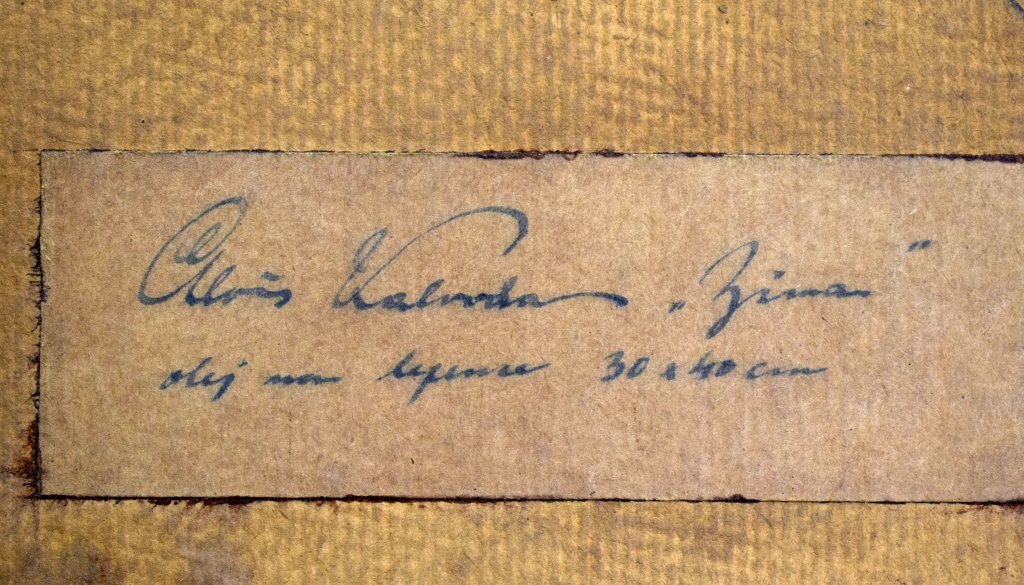 Alois Kalvoda „Zima"
olej na lepence 30 x 40 cm